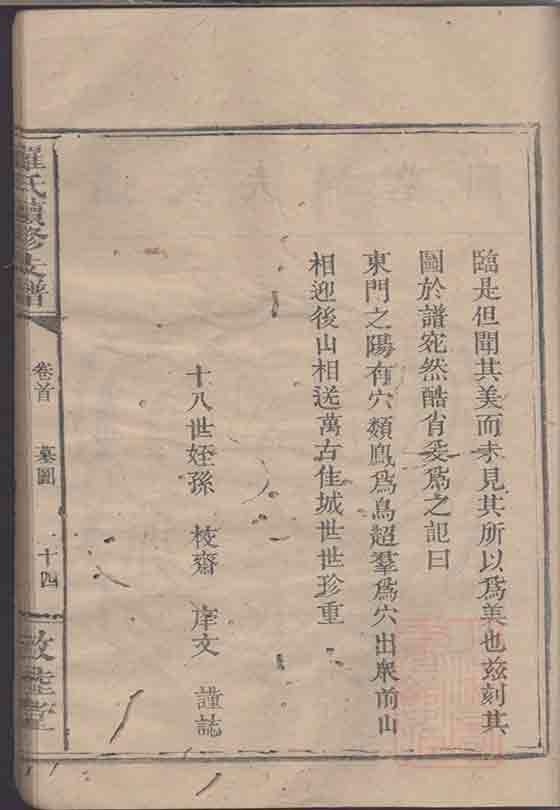 臨是但聞其美而未見其所以為美也茲刻其
圖於譜宛然酷肖爰為之記曰
東門之陽有穴類鳳為鳥超羣為穴出衆前山
相迎後山相送萬古佳城世世珍重
十八世姪孫 枝齋 庠文 謹誌
羅氏續修支譜
卷首
墓圖
十四
敦睦堂